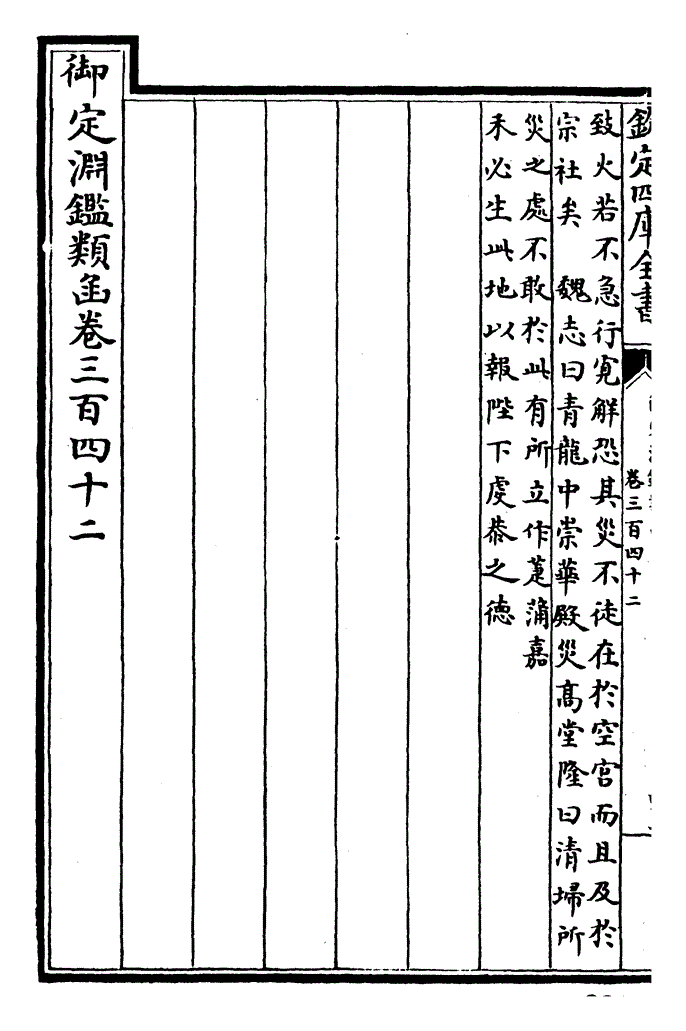 欽定四庫全書
卷三百四十二
致火若不急行寛解恐其災不徒在於空宫而且及於
宗社矣　魏志曰青龍中崇華殿災髙堂隆曰清埽所
災之處不敢於此有所立作萐蒲嘉
禾必生此地以報陛下虔恭之徳
御定淵鑑類函卷三百四十二